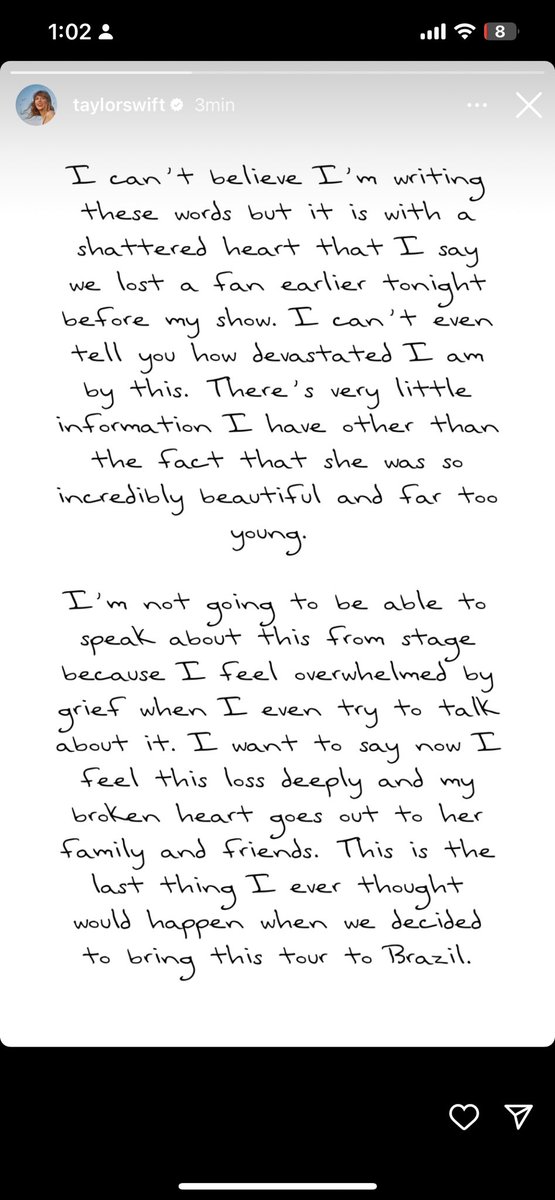 1:02
8
taylorswift 3min
I can't believe I'm writing
these words but it is with a
shattered heart that I say
we lost a fan earlier tonight
before my show. I can't even
tell you how devastated I am
by this. There's very little
information I have other than
the fact that she was so
incredibly beautiful and far too
young.
I'm not going to be able to
speak about this from stage
because I feel overwhelmed by
grief when I even try to talk
about it. I want to say now I
feel this loss deeply and my
broken heart goes out to her
family and friends. This is the
last thing I ever thought
would happen when we decided
to bring this tour to Brazil.